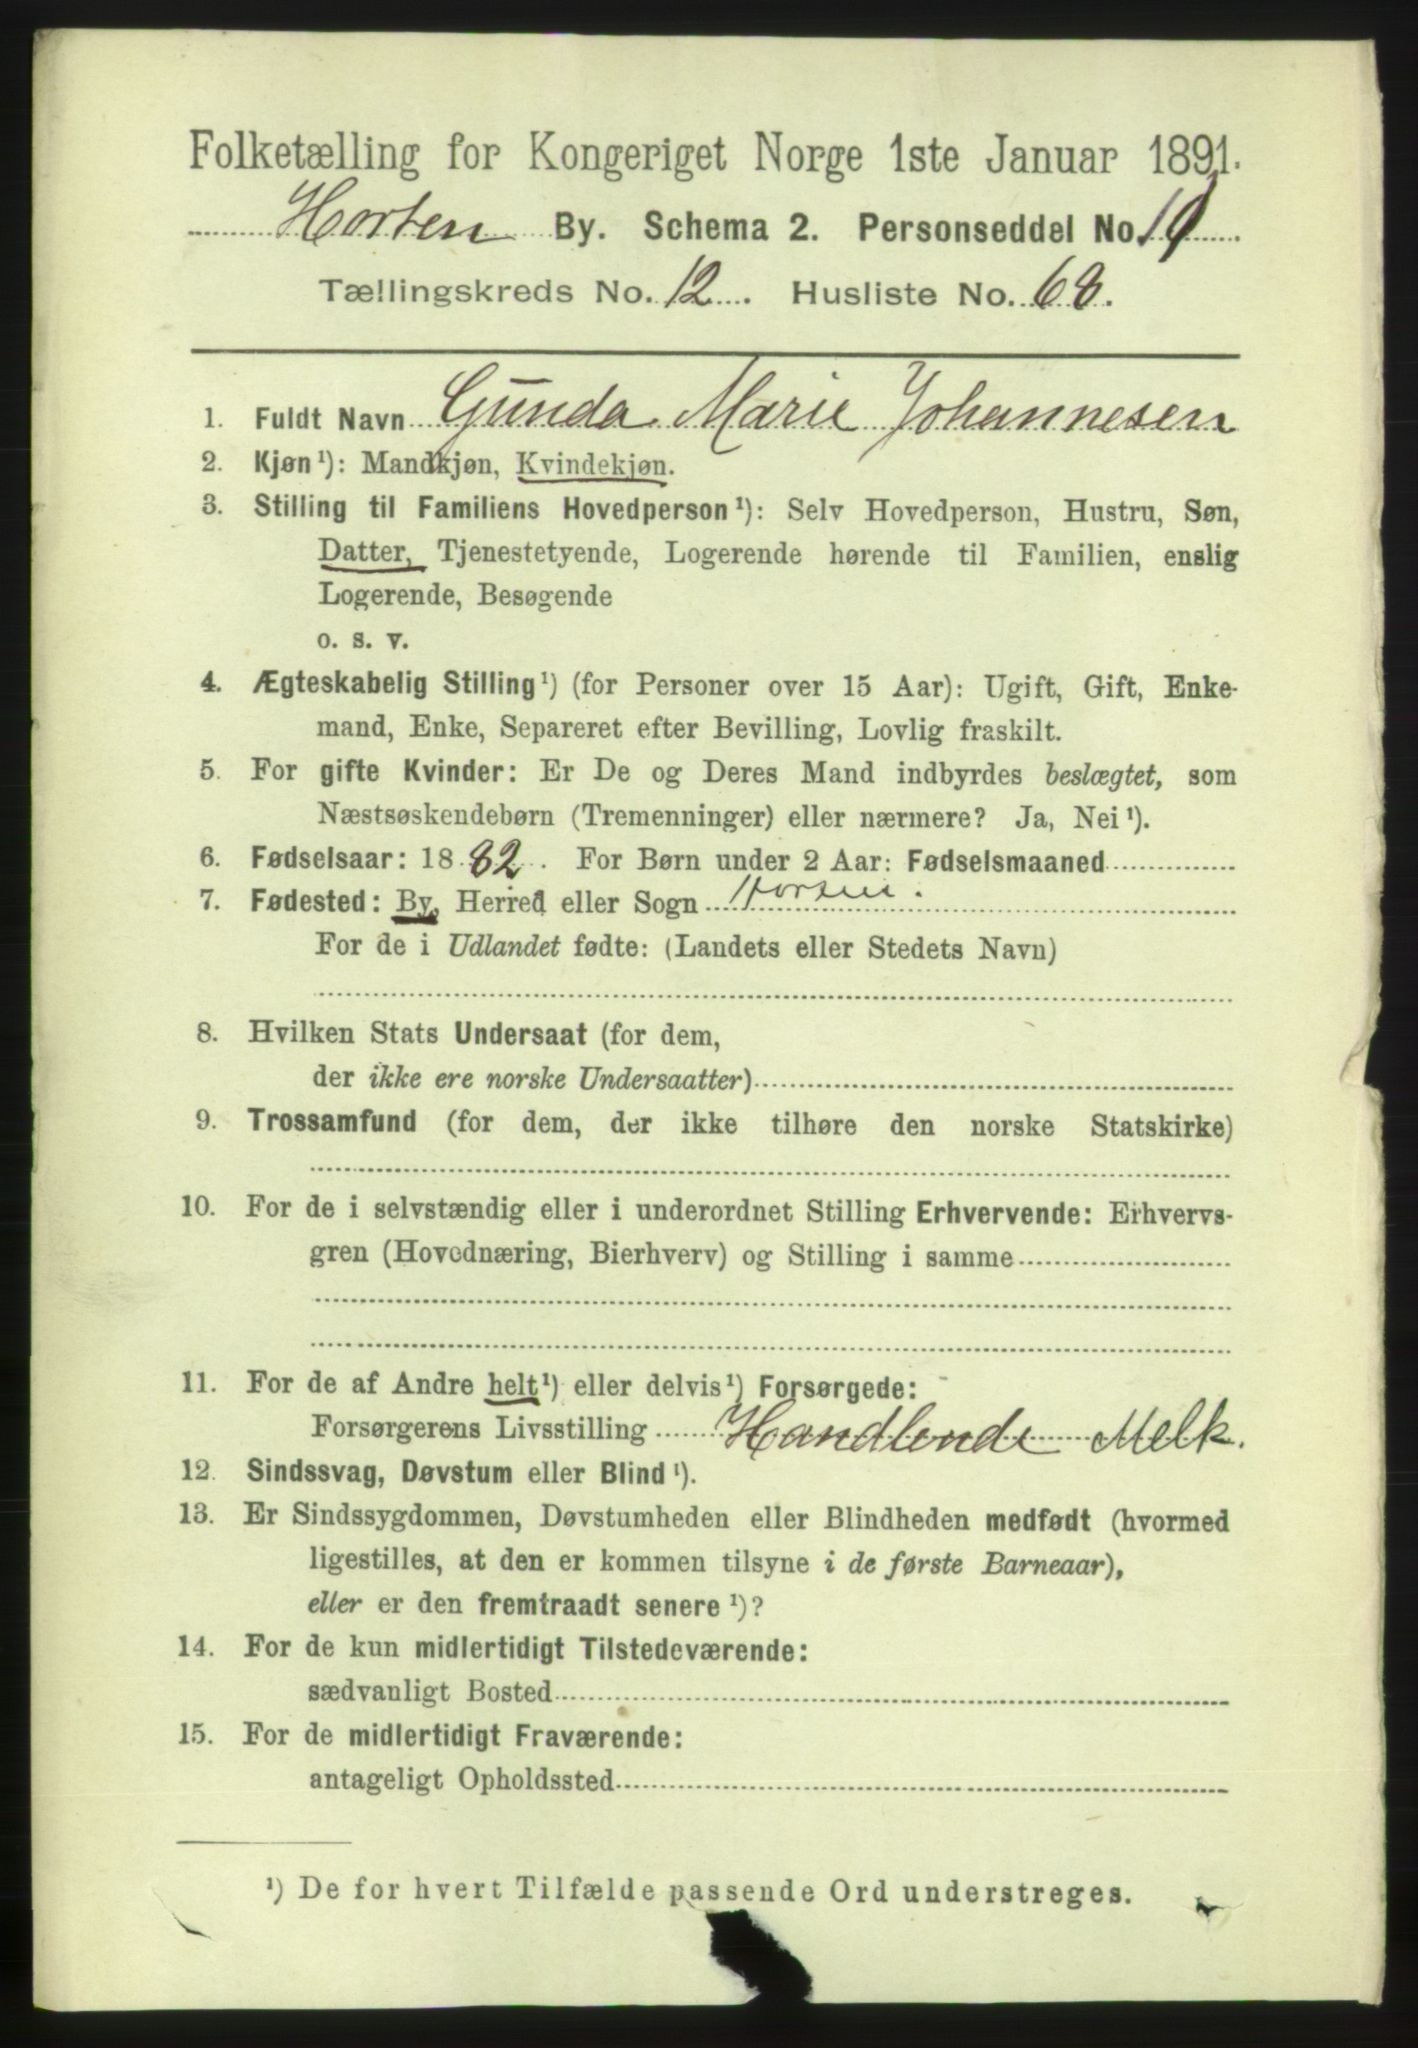 Folketælling for Kongeriget Norge 1ste Januar 1891.
Horten By. Schema 2. Personseddel No.
Tællingskreds No. 12. Husliste No. 68.
1. Fuldt Navn Gunda Marie Johannesen
2. Kjøn ¹): Mandkjøn, Kvindekjøn.
3. Stilling til Familiens Hovedperson ¹): Selv Hovedperson, Hustru, Søn,
Datter, Tjenestetyende, Logerende hørende til Familien, enslig
Logerende, Besøgende
o. s. v.
4. Ægteskabelig Stilling ¹) (for Personer over 15 Aar): Ugift, Gift, Enke-
mand, Enke, Separeret efter Bevilling, Lovlig fraskilt.
5. For gifte Kvinder: Er De og Deres Mand indbyrdes beslægtet, som
Næstsøskendebørn (Tremenninger) eller nærmere? Ja, Nei ¹).
6. Fødselsaar: 1882. For Børn under 2 Aar: Fødselsmaaned
7. Fødested: By, Herred eller Sogn Horten.
For de i Udlandet fødte: (Landets eller Stedets Navn)
8. Hvilken Stats Undersaat (for dem,
der ikke ere norske Undersaatter)
9. Trossamfund (for dem, der ikke tilhøre den norske Statskirke)
10. For de i selvstændig eller i underordnet Stilling Erhvervende: Erhvervs-
gren (Hovednæring, Bierhverv) og Stilling i samme
11. For de af Andre helt ¹) eller delvis ¹) Forsørgede:
Forsørgerens Livsstilling Handlende Melk.
12. Sindssvag, Døvstum eller Blind ¹).
13. Er Sindssygdommen, Døvstumheden eller Blindheden medfødt (hvormed
ligestilles, at den er kommen tilsyne i de første Barneaar),
eller er den fremtraadt senere ¹)?
14. For de kun midlertidigt Tilstedeværende:
sædvanligt Bosted
15. For de midlertidigt Fraværende:
antageligt Opholdssted
¹) De for hvert Tilfælde passende Ord understreges.